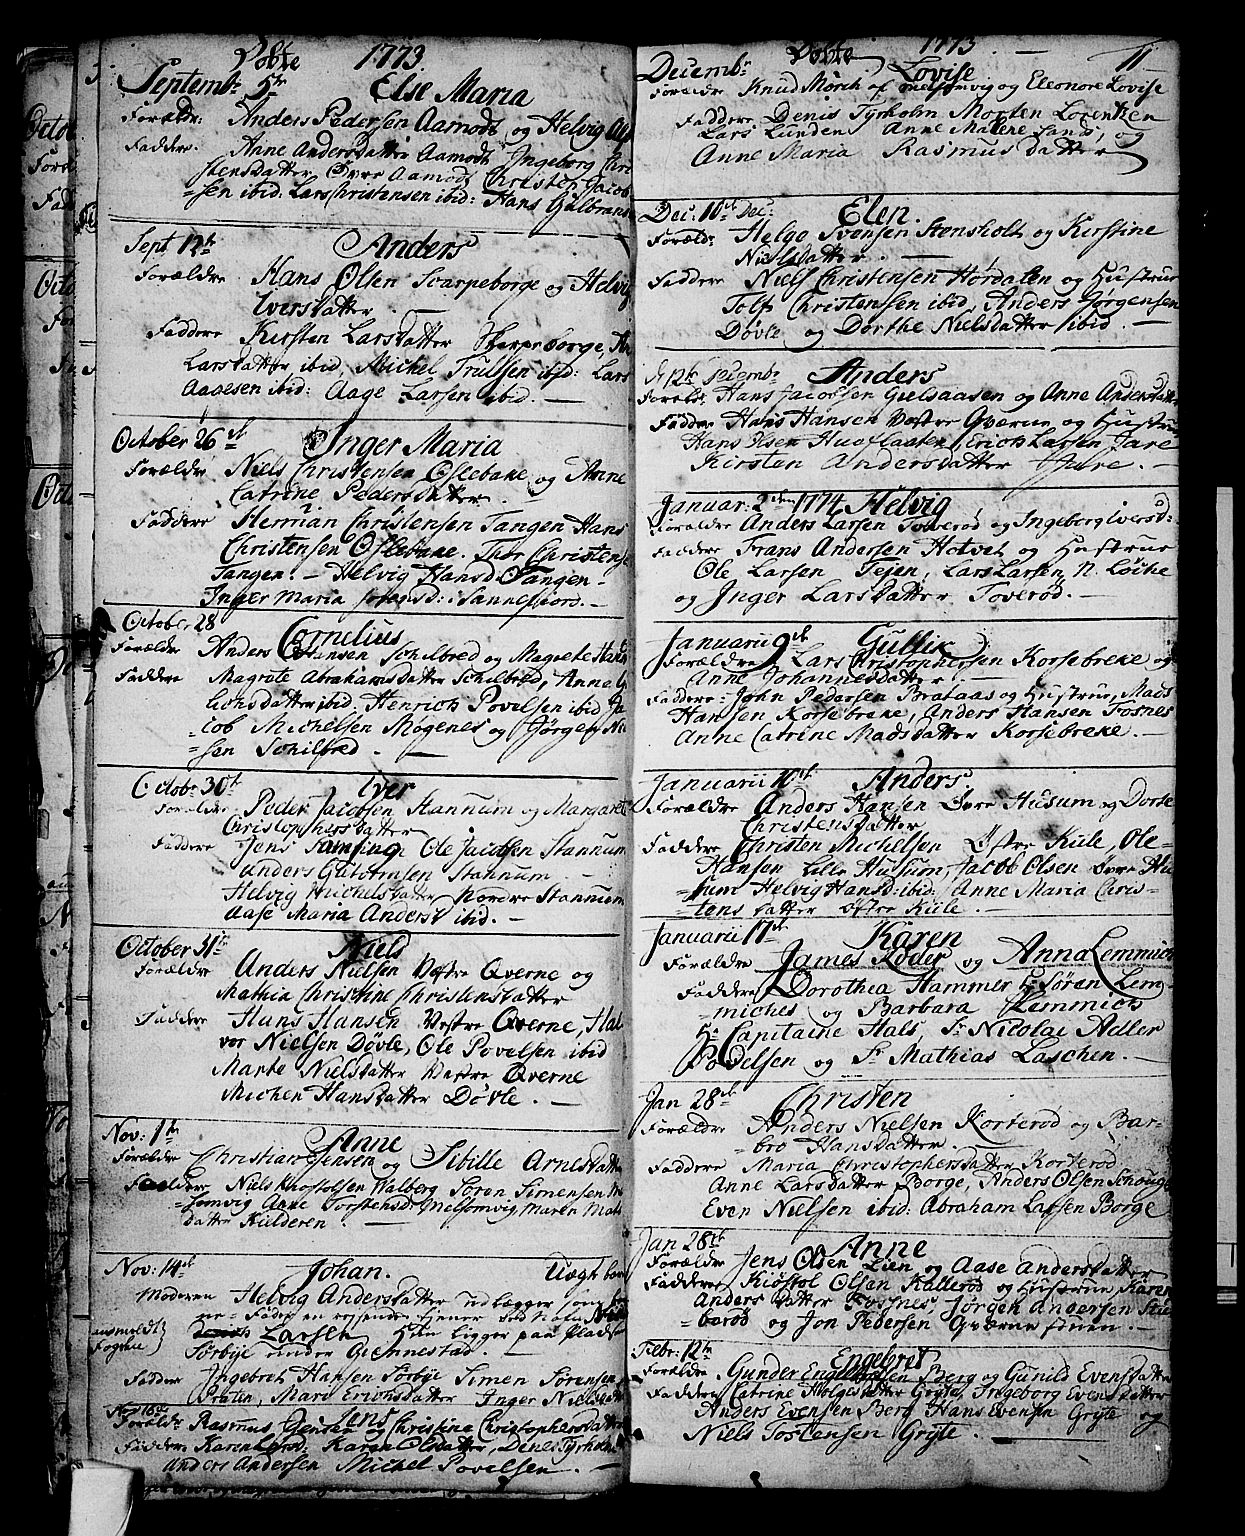 Døbte 1773
Septemb: 5te Else Maria
Foræld: Anders Pedersen Aamodt og Helvig
Faddere. Anne Andersdatter Aamodt Ingeborg Chri
stensdatter Øvre Aamodt Christen Jacob
=sen ibid: Lars Christensen ibid: Hans Gulbrans
Sept 12te Anders
Forældre Hans Olsen Scarpeborge og Helvig
Iversdatter
Faddere Kirsten Larsdatter Skarpeborge, An
Larsdatter ibid, Michel Trulsen ibid: Lars
Aagesen ibid: Aage Larsen ibid.
October 26de Inger Maria
Forældre Niels Christensen Oslebake og Anne
Catrine Pedersdatter
Faddere Herman Christensen Tangen Hans
Christensen Oslebake. Thor Christense
Tangen. Helvig Hansd Tangen
Inger Maria i Sannefiord.
October 28 Cornelius
Forældre Anders Schilbred og Magrete Hans
Faddere Magrete Abrahamsdatter Schilbred, Anne
ibid: Henrich Povelsen ibid Ja
=cob Michelsen Mogenes og Jørgen Ni
=sen Schilbred
Octob: 30te Iver
Forældre Peder Jacobsen Stannum og Margaret
Christophersdatter
Faddere Jens Ole Jacobsen Stannum
Anders Stannum
Helvig Michelsdatter Nordre Stannum
Aase Maria Andersd ibid.
October 31te Niels
Forældre Anders Nielsen Vestre Qverne og
Mathia Christine Christensdatter
Faddere Hans Hansen Vestre Qverne, Hal
vor Nielsen Døvle, Ole Povelsen ibid
Marte Nielsdatter Vestre Qverne
Michen Hansdatter Døvle.
Nov: 1te Anne
Forældre Christian Jensen og Sibille Arnesdatter
Faddere Niels Valberg Søren Simensen
=somvig Anne Torstensdr Melsomvig Maren
datter Kulderen
Nov: 14de Johan. Uægh barn
Moderen Helvig Andersdatter udlægger som
Fader en
Larsen Han ligger paa Plads
Sørbye under Giennestad.
Faddere Ingebret Hansen Sørbye Simen Sørensen
Mari Erichsdatter Inger Nielsdatter
Nov 16de Jens
Foræld: Rasmus Jensen og Christine Christophersdatter
Faddere Karen Karen Olsdatter, Denis Tyrholm
Anders Andersen Michel Povelsen.
Døbte 1773 11
Decemb: Lovise
Forældre Knud Mørch af melsomvig og Eleonore Lovise
Faddere Denis Tyrholm Morten Lorentzen
Lars Lunden Anne Malene Lund, og
Anne Maria Rasmusdatter
Dec. 10de Dec: Elen.
Foræld: Helge Svensen Stensholt og Kirstine
Nielsdatter
Faddere Niels Christensen Hørdalen og Hustrue
Christensen ibid, Anders Jørgensen
Døvle og Dorthe Nielsdatter ibid.
d 12te Decemb: Anders
Foræld: Hans Jacobsen Gielsaasen og Anne Andersdatter
Faddere Hans Hansen Vestre Qværne og Hustrue
Hans Olsen Erich Larsen Jare
Kirsten Andersdatter Jare.
Januar: 2den 1774 Helvig
Forældre Anders Larsen Toverød og Ingeborg Iversd:
Faddere Frans Andersen Hotvet og Hustrue
Ole Larsen Fejen, Lars Larsen N. Løcke
og Inger Larsdatter Toverød.
Januarii 9de Gullic
Forældre Lars Christophersen Korsebreke og
Anne Johannesdatter
Faddere: John Pedersen Brataas og Hustrue, Mads
Hansen Korsebreke, Anders Hansen Fosnes
Anne Catrine Madsdatter Korsebreke.
Januarii 10de Anders
Forældre Anders Hansen Øvre Husum og Dorte
Christensdatter
Faddere Christen Michelsen Østre Kiile, Ole
Hansen Lille Husum, Jacob Olsen Øvre Hu
=sum Helvig Hansd: ibid, Anne Maria Chris=
=tensdatter Østre Kiile.
Januarii 17de Karen
Forældre James Røder og Anna Lemmich
Faddere Dorothea Hammer Hr Søren Lem
=miches og Barbara Lemmich
Hr Capitaine Hals Sr Nicolai Adler
Povelsen og Sr Mathias Laschen.
Jan 28de Christen
Forældre Anders Nielsen Korterød og Bar=
=bro Hansdatter.
Faddere Maria Christophersdatter Korterød
Anne Larsdatter Borge, Anders Olsen Schouge
Even Nielsen ibid: Abraham Larsen Borge
Jan 28de Anne
Forældre Jens Olsen Lien og Aase Andersdatter
Faddere Kiøstol Olsen Kallerød og Hustrue Karen
Andersdatter Fossnes, Jørgen Andersen
=berød og Jon Pedersen Qværnestuen.
Febr: 12te Engebret
Forældre Gunder Engebretsen Berg og Gunild Evensdatter
Faddere Catrine Helgesdatter Gryte, Ingeborg Evensdatter
Anders Evensen Berg Hans Evensen Gryte og
Niels Tostensen Gryte.